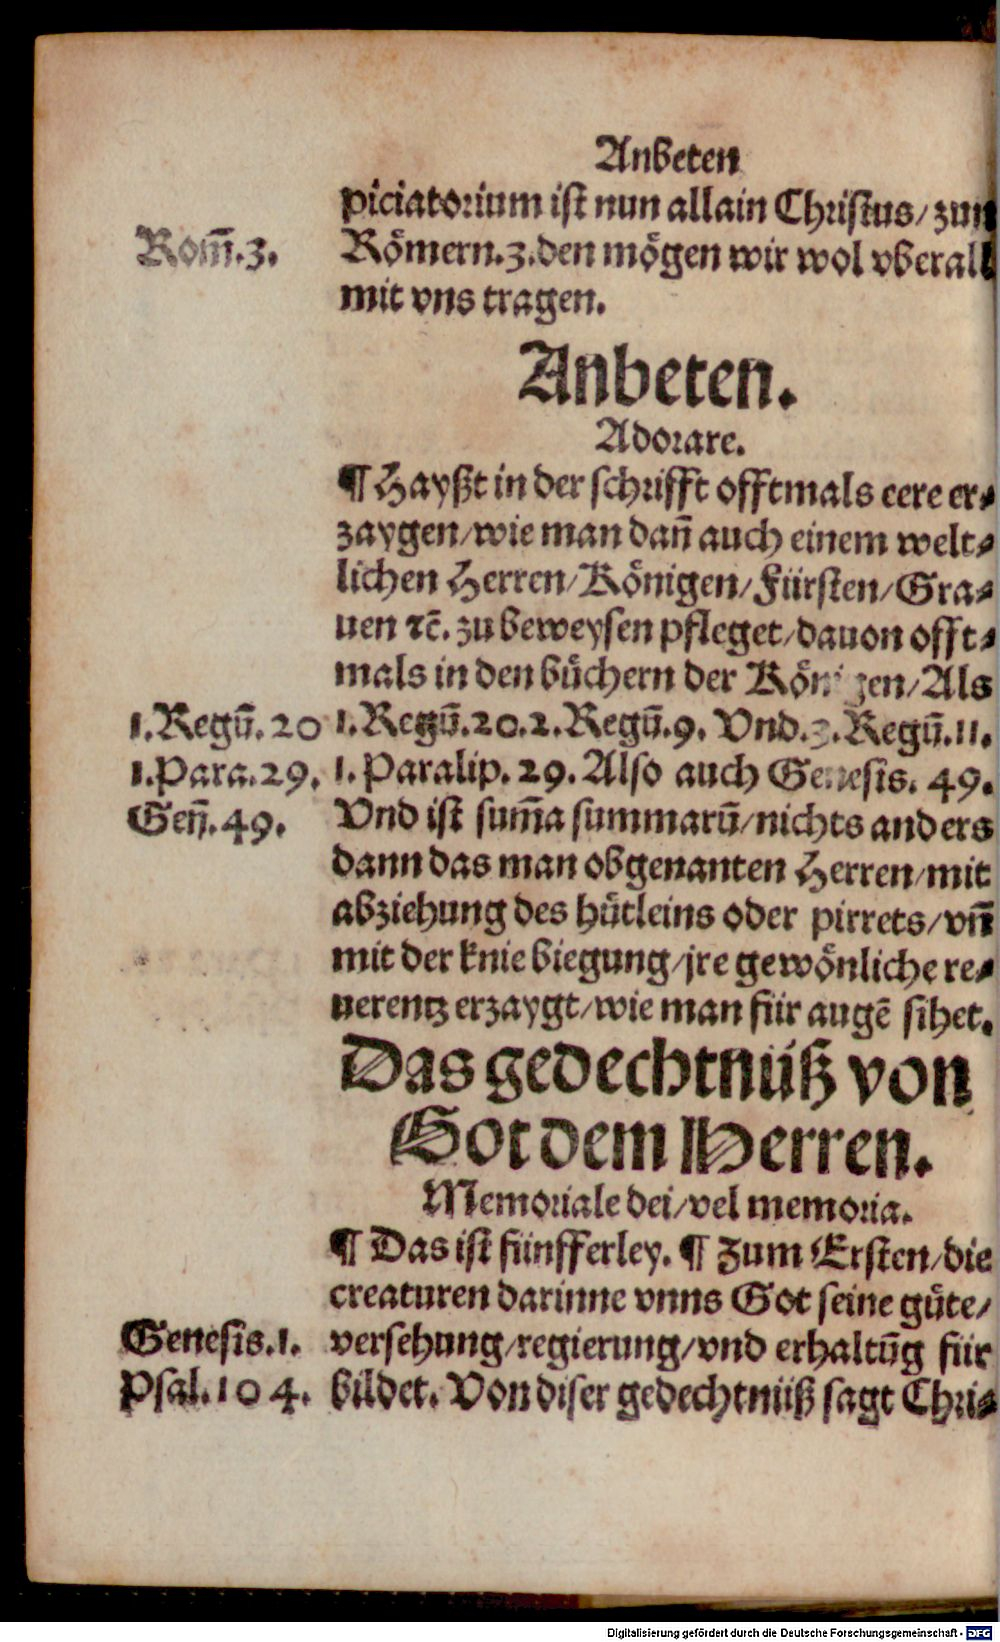 Anbeten
piciatorium ist nun allain Christus/ zun
Rom̃.3.
Römern.3.den mögen wir wol vberall
mit vns tragen.
Anbeten.
Adorare.
¶ Hayßt in der schrifft offtmals eere er⸗
zaygen/wie man dañ auch einem welt⸗
lichen Herren/Königen/Fürsten/Gra⸗
uen ⁊c̃. zu beweysen pfleget/dauon offt⸗
mals in den büchern der Königen/Als
1.Regũ.20
1.Regũ.20.2.Regũ.9. Vnd.3.Regũ.11.
1.Para.29.
1.Paralip.29.Also auch Genesis.49.
Geñ.49.
Vnd ist sum̃a summarũ/nichts anders
dann das man obgenanten Herren/mit
abziehung des hütleins oder pirrets/vñ
mit der knie biegung/jre gewönliche re⸗
uerentz erzaygt/wie man für augẽ sihet.
Das gedechtnüß von
Got dem Herren.
Memoriale dei/vel memoria.
¶ Das ist fünfferley. ¶ Zum Ersten/die
creaturen darinne vnns Got seine güte/
Genesis.1.
versehung/regierung/vnd erhaltũg für
Psal.104.
bildet. Von diser gedechtnüß sagt Chri⸗
Digitalisierung gefördert durch die Deutsche Forschungsgemeinschaft - DFG